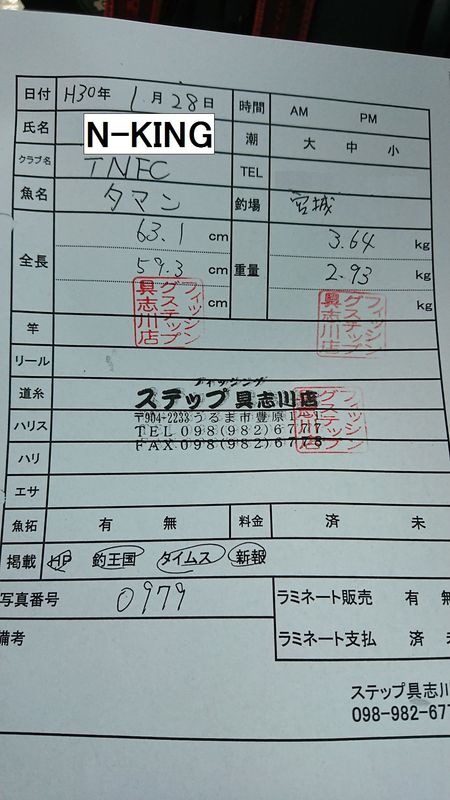 日付 H30年 1月28日 時間 AM PM
氏名 N-KING 潮 大 中 小
クラブ名 TNFC TEL
魚名 タマン 釣場 宮城
全長 63.1 cm 重量 3.64 kg
59.3 cm 2.93 kg
cm kg
フィッシングステップ具志川店
フィッシングステップ具志川店
竿
リール
道糸
フィッシング
ステップ具志川店
〒904-2233うるま市豊原
TEL 098(982)6777
FAX 098(982)6778
フィッシングステップ具志川店
ハリス
ハリ
エサ
魚拓 有 無 料金 済 未
掲載 HP 釣王国 タイムス 新報
写真番号 0979 ラミネート販売 有 無
備考 ラミネート支払 済 未
ステップ具志川
098-982-677